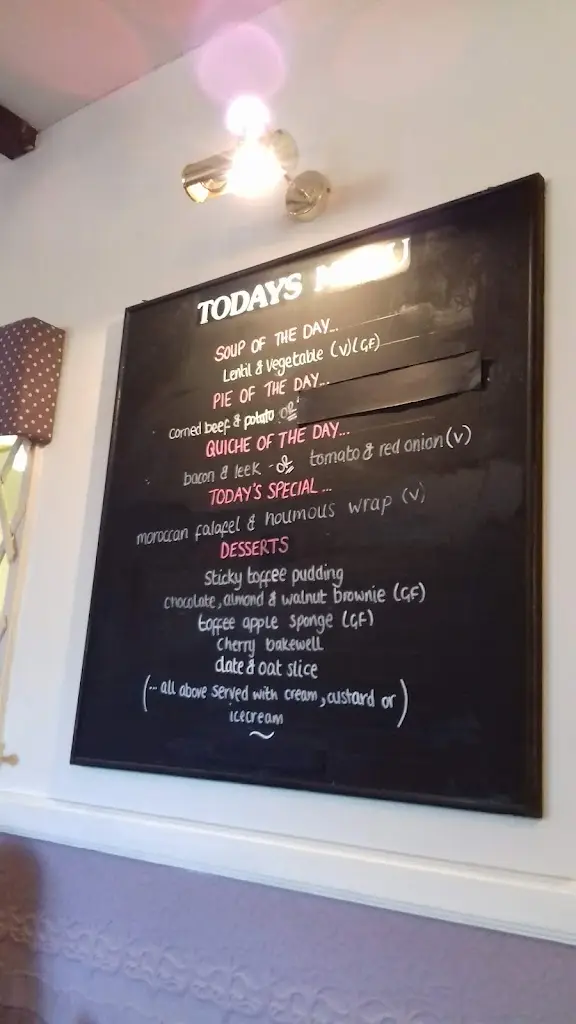 TODAYS MENU
SOUP OF THE DAY...
Lentil & Vegetable (V)(GF)
PIE OF THE DAY...
corned beef & potato or
QUICHE OF THE DAY...
bacon & leek - or tomato & red onion (V)
TODAY'S SPECIAL...
moroccan falafel & houmous wrap (V)
DESSERTS
Sticky toffee pudding
chocolate, almond & walnut brownie (GF)
toffee apple sponge (GF)
Cherry bakewell
date & oat slice
(... all above served with cream, custard or
icecream)